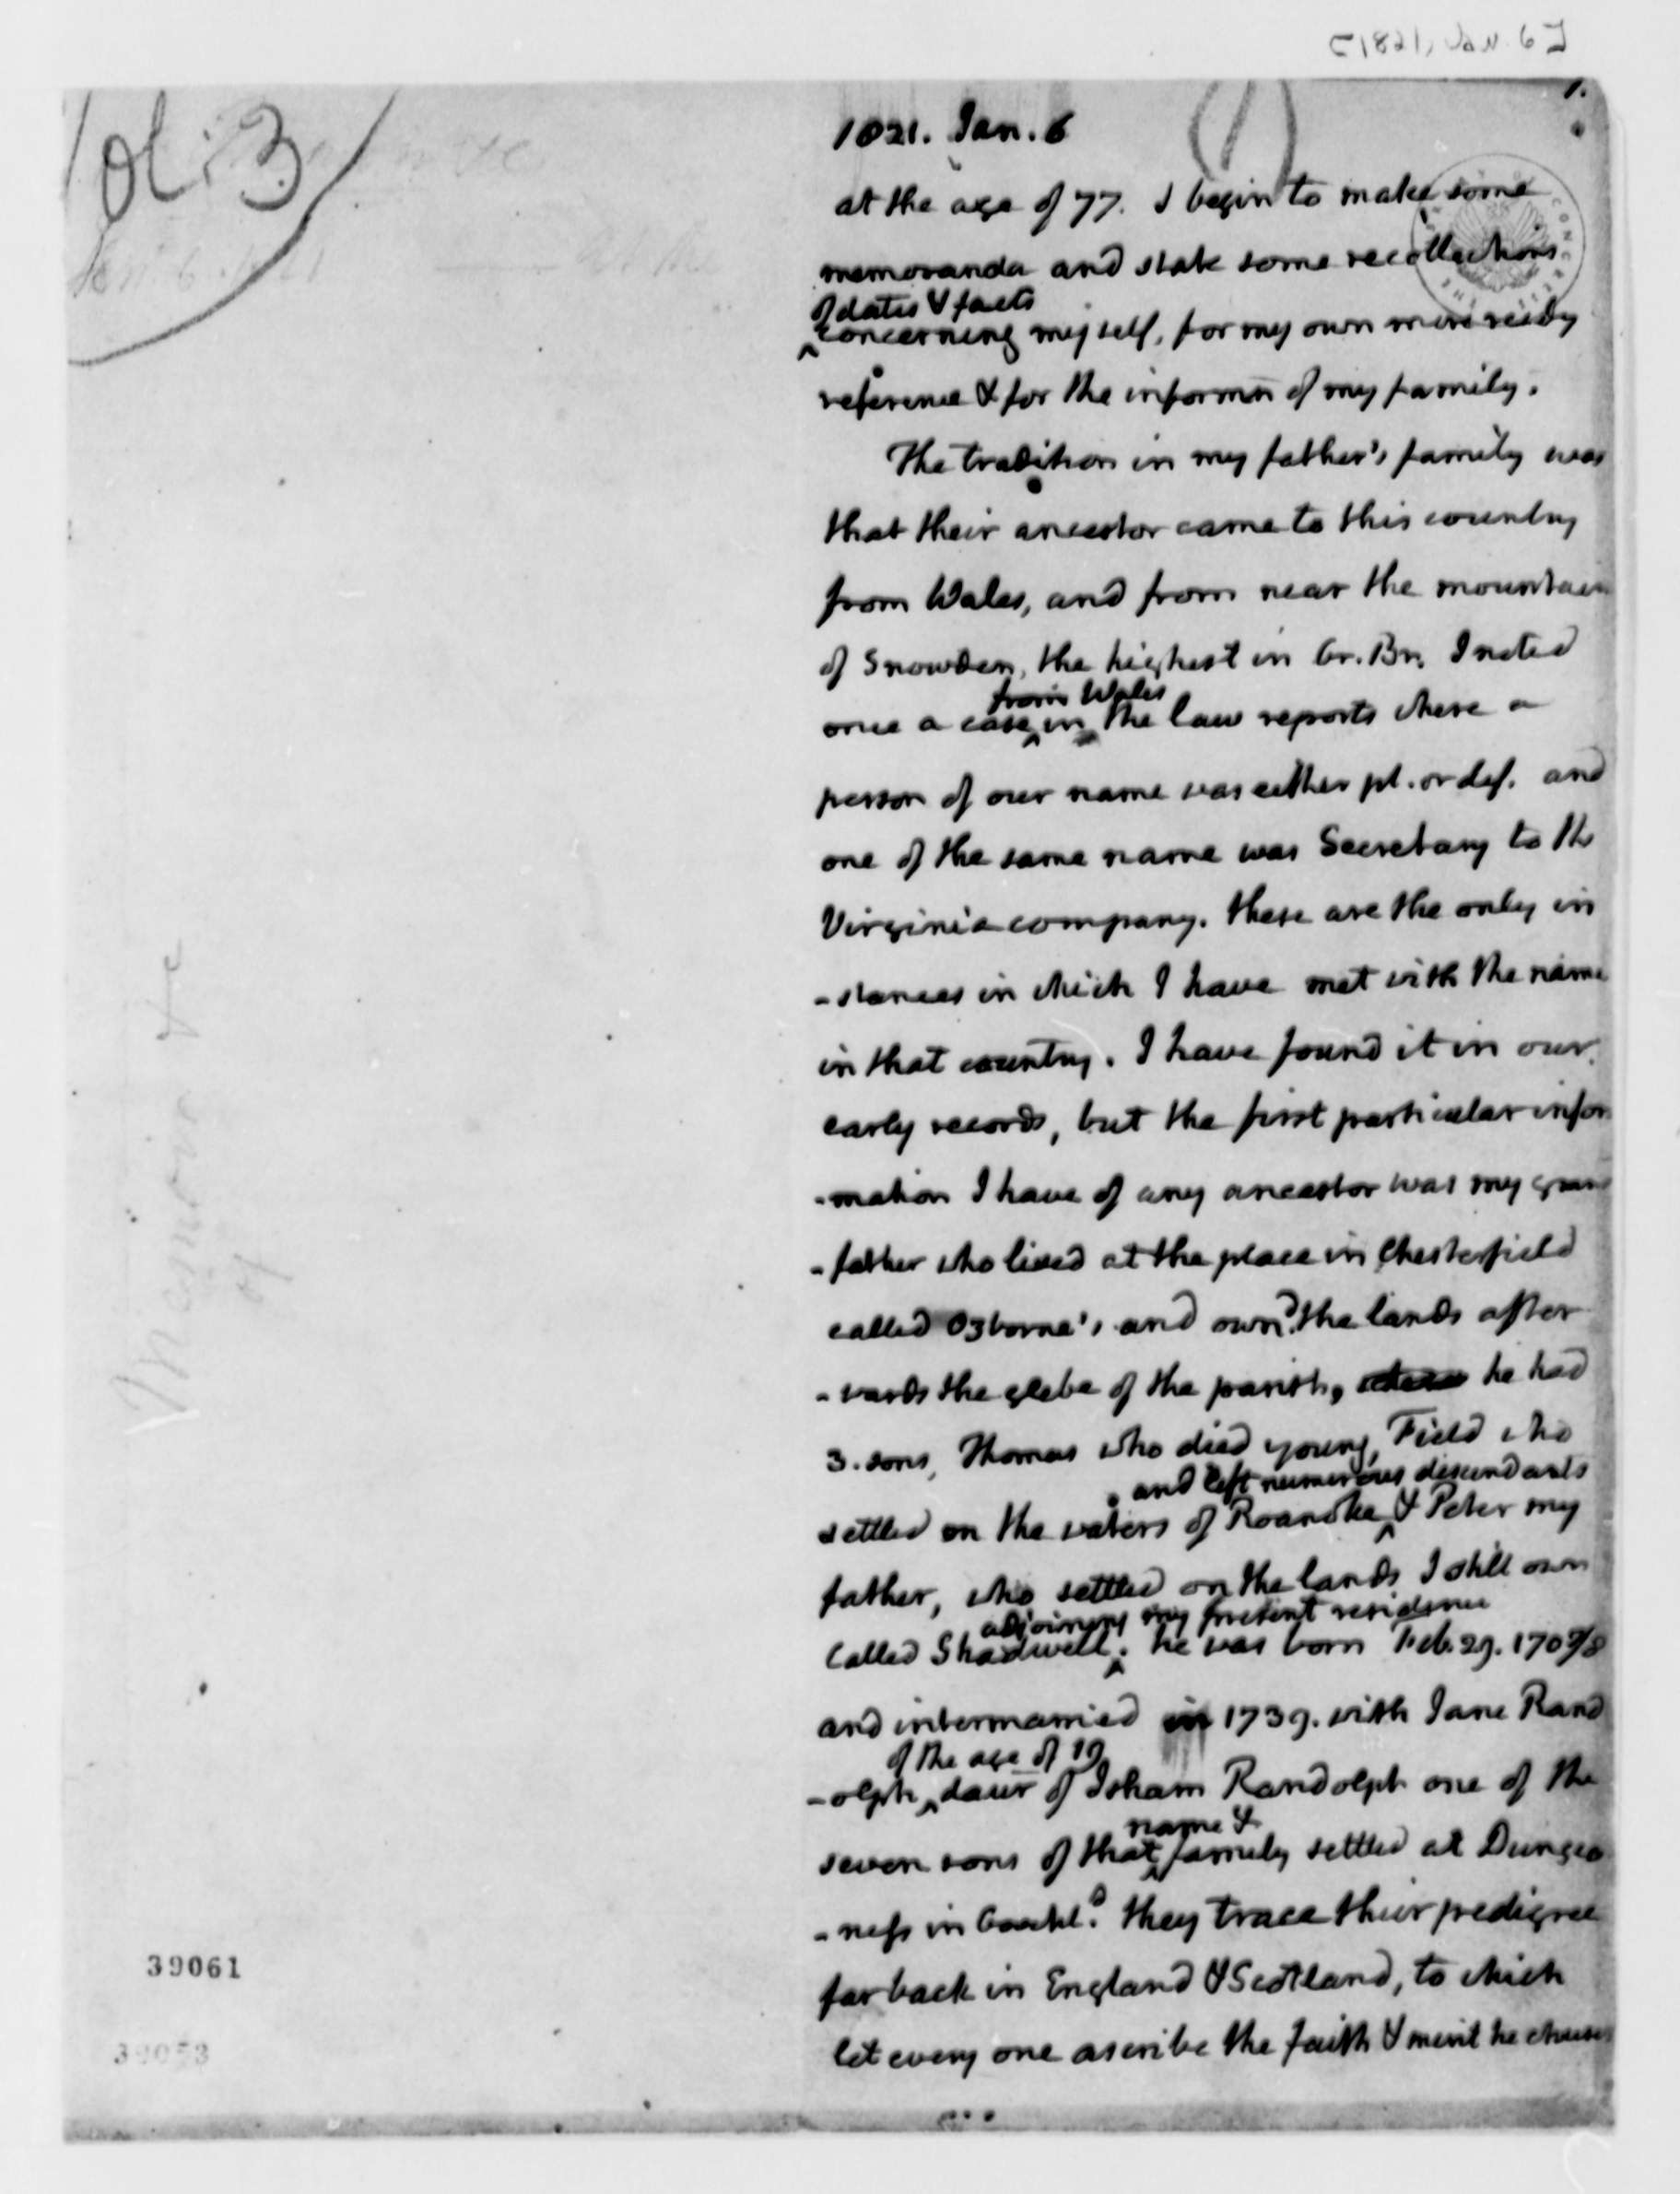 [1821, Jan. 6]
1.
1821. Jan. 6
at the age of 77. I begin to make some
memoranda and state some recollections
of dates & facts
concerning myself, for my own more ready
reference & for the informn of my family.
The tradition in my father's family was
that their ancestor came to this country
from Wales, and from near the mountain
of Snowden, the highest in Gr. Br. I noted
from Wales
once a case in the law reports where a
person of our name was either pl. or def. and
one of the same name was Secretary to the
Virginia company. these are the only in
-stances in which I have met with the name
in that country. I have found it in our
early records, but the first particular infor
-mation I have of any ancestor was my grand
-father who lived at the place in Chesterfield
called Ozborne's and ownd. the lands after
-wards the glebe of the parish, he had
3. sons, Thomas who died young, Field who
and left numerous descendants
settled on the waters of Roanoke & Peter my
father, who settled on the lands I still own
adjoining my present residence
called Shadwell. he was born Feb. 29. 1707/8
and intermarried in 1739. with Jane Rand
of the age of 19
-olph daur of Isham Randolph one of the
name &
seven sons of that family settled at Dungeo
-ness in Goochld. they trace their pedigree
far back in England & Scotland, to which
let every one ascribe the faith & merit he chuses
39061